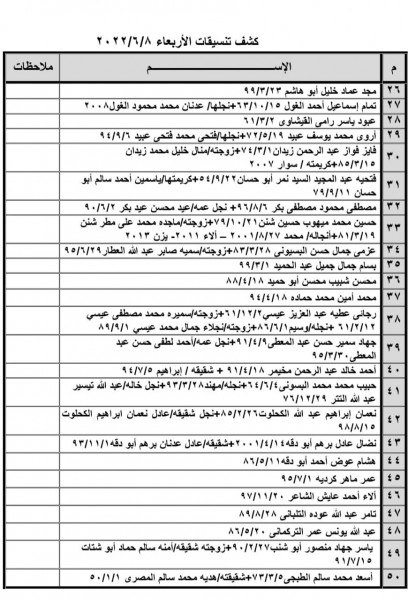 كشف تنسيقات الأربعاء ٢٠٢٢/٦/٨
م الإســـــم ملاحظات
٢٦ مجد عماد خليل أبو هاشم ٩٩/٣/٢٣
٢٧ تمام إسماعيل أحمد الغول ٦٣/١٠/١٥+نجلها/ عدنان محمد محمود الغول٢٠٠٨
٢٨ عبود ياسر رامى القيشاوى ٦١/٣/٢
٢٩ أروى محمد يوسف عبيد ٧٢/٥/١٩+نجلها/فتحي محمد فتحى عبيد ٩٤/٩/٦
٣٠ فايز فواز عبد الرحمن زيدان ٧٤/٣/١+زوجته/منال خليل محمد زيدان
٨٥/٣/١٥+كريمته / سوار ٢٠٠٧
٣١ فتحيه عبد المجيد السيد نمر أبو حسان٥٤/٩/٢٢+كريمتها/ياسمين أحمد سالم أبو
حسان ٧٩/٩/١١
٣٢ مصطفى محمود مصطفى بكر ٩٦/٨/٦+ نجل عمه/عيد محسن عيد بكر ٩٠/٦/٢
٣٣ حسين محمد ميهوب حسين شنن٧٩/١٠/٢١+زوجته/ماجده محمد على مطر شنن
٨١/٣/١٩+أنجاله/ محمد ٢٠٠١/٨/٢٧ – ألاء ٢٠١١- يزن ٢٠١٣
٣٤ عزمى جمال حسن البسيونى ٨٣/٣/٢٨+زوجته/سميه صابر عبد الله العطار٩٥/٦/٢٩
٣٥ بسام جمال جميل عبد الحميد ٩٩/٣/١
٣٦ محسن شبيب محسن أبو حميد ٨٨/٤/١٨
٣٧ محمد أمين محمد حماده ٩٤/٤/١٨
٣٨ رجائى عطيه عبد العزيز عيسي٦١/١٢/٢+زوجته/سميره محمد مصطفى عيسي
٦١/٢/١٢ +نجله/وسيم٨٦/٦/١+زوجته/نجلاء جمال محمد عيسي ٨٩/٩/١
٣٩ جهاد سمير حسن عبد المعطي٩١/٤/٩+نجل عمه/أحمد لطفى حسن عبد
المعطى٩٥/٣/٣٠
٤٠ أحمد خالد عبد الرحمن مخيمر ٩١/٤/١٨ + شقيقه / إبراهيم ٩٤/٧/٥
٤١ حبيب محمد محمد البسونى٦٤/٦/٤+نجله/مهند٩٣/٣/٢٨+نجل خاله/عبد الله تيسير
عبد الله التتر ٧٦/١٢/٢٩
٤٢ نعمان إبراهيم عبد الله الكحلوت٨٥/٢/٢٦+نجل شقيقه/عادل نعمان ابراهيم الكحلوت
٩٨/٨/١٥
٤٣ نضال عادل برهم أبو دقه٢٠٠١/٤/١٤+شقيقه/عادل عدنان برهم أبو دقه ٩٣/١١/١
٤٤ هشام عوض أحمد أبو دقه ٨٦/٥/١١
٤٥ عمر ماهر كرديه ٩٥/٧/١
٤٦ ألاء أحمد عايش الشاعر ٩٧/١١/٢٠
٤٧ تامر عبد الله عوده التلبانى ٨٩/٨/٢٨
٤٨ عبد الله يونس عمر التركمانى ٨٦/٥/٢٠
٤٩ ياسر جهاد منصور أبو شنب٩٠/٢/٢٧+زوجته شقيقه/أمنه سالم حماد أبو شتات
٩١/٧/١٥
٥٠ أسعد محمد سالم الطبجى٧٣/٣/٥+شقيقته/هديه محمد سالم المصرى ٥٠/١/١